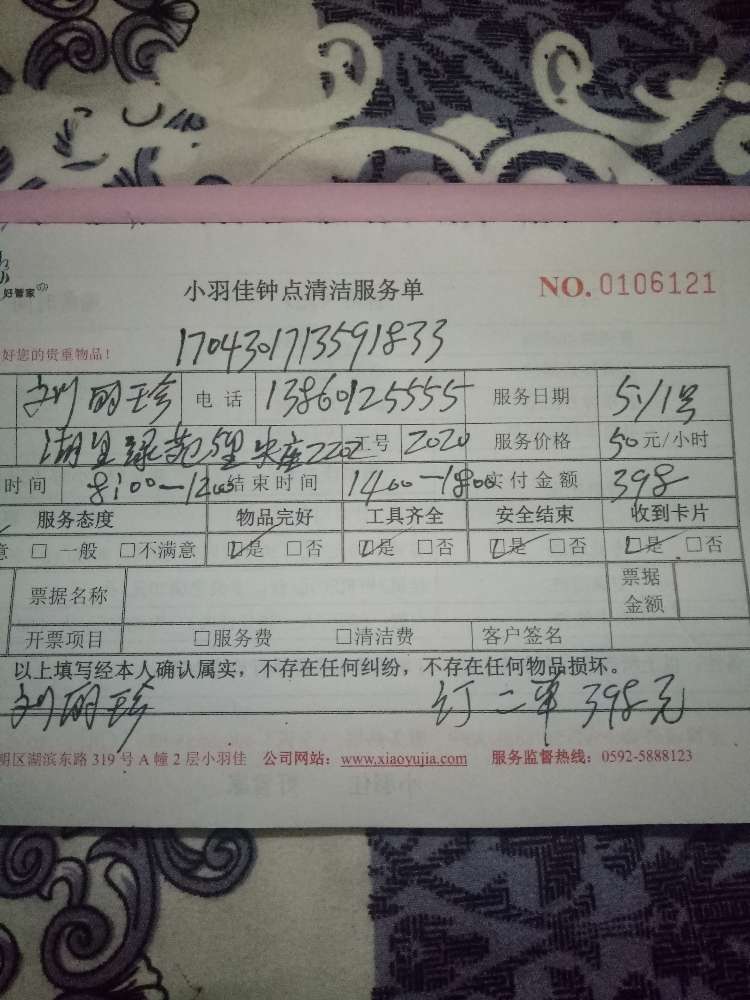 好管家
小羽佳钟点清洁服务单 NO. 0106121
好您的贵重物品! 170430171359 1833
刘丽珍 电话 13860125555 服务日期 5/1号
湖里绿苑 2202 工号 2020 服务价格 50元/小时
时间 8:00—1200 结束时间 1400—1800 实付金额 398
服务态度 物品完好 工具齐全 安全结束 收到卡片
意 □ 一般 □不满意 □是 □否 □是 □否 □是 □否 □是 □否
票据名称 票据金额
开票项目 □服务费 □清洁费 客户签名
以上填写经本人确认属实，不存在任何纠纷，不存在任何物品损坏。
刘丽珍 订二单398元
明区湖滨东路 319 号 A 幢 2 层小羽佳 公司网站：www.xiaoyujia.com 服务监督热线：0592-5888123